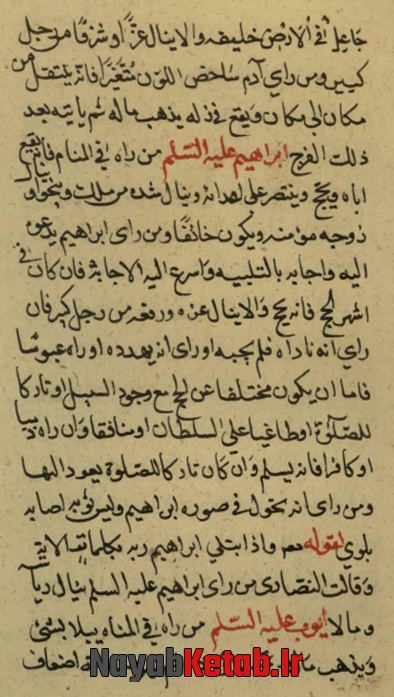 جاعل في الارض خليفه والا ينال عزّا وشرفا من رجل
كبير ومن راي آدم شاحض اللون متغيّرا فانه ينتقل من
مكان الي مكان ويقع في ذله يذهب ماله ثم ياتيه بعد
ذلك الفرج ابراهيم عليه السّلم من راه في المنام فانه
اباه ويحج وينتصر علي اعدائه وينال شده من ملك وينجوا و
زوجه مؤمنه ويكون خائفا ومن راي ابراهيم يدعوه
اليه واجابه بالتلبيه واسرع اليه الاجابة فان كان في
اشهر الحج فانه يحج والا ينال عزه ورفعه من رجل كبير فان
راي انه ناداه فلم يجبه او راي انه يهدده او راه عبوسا
فاما ان يكون مختلفا عن الحج مع وجود السبيل او تاركا
للصّلوة او طاغيا علي السلطان او منافقا وان راه
او كافرا فانه يسلم وان كان تاركا للصلوة يعود اليها
ومن راي انه تحول في صوره ابراهيم وليس ثوبه اصابه
بلوي لقوله واذا ابتلي ابراهيم ربه بكلمات الاية
وقالت النصاري من راي ابراهيم عليه السلم ينال
ومالا ايوب عليه السّلم من راه في المنام يبلا بشئ
ويذهب اضعاف
NayabKetab.Ir